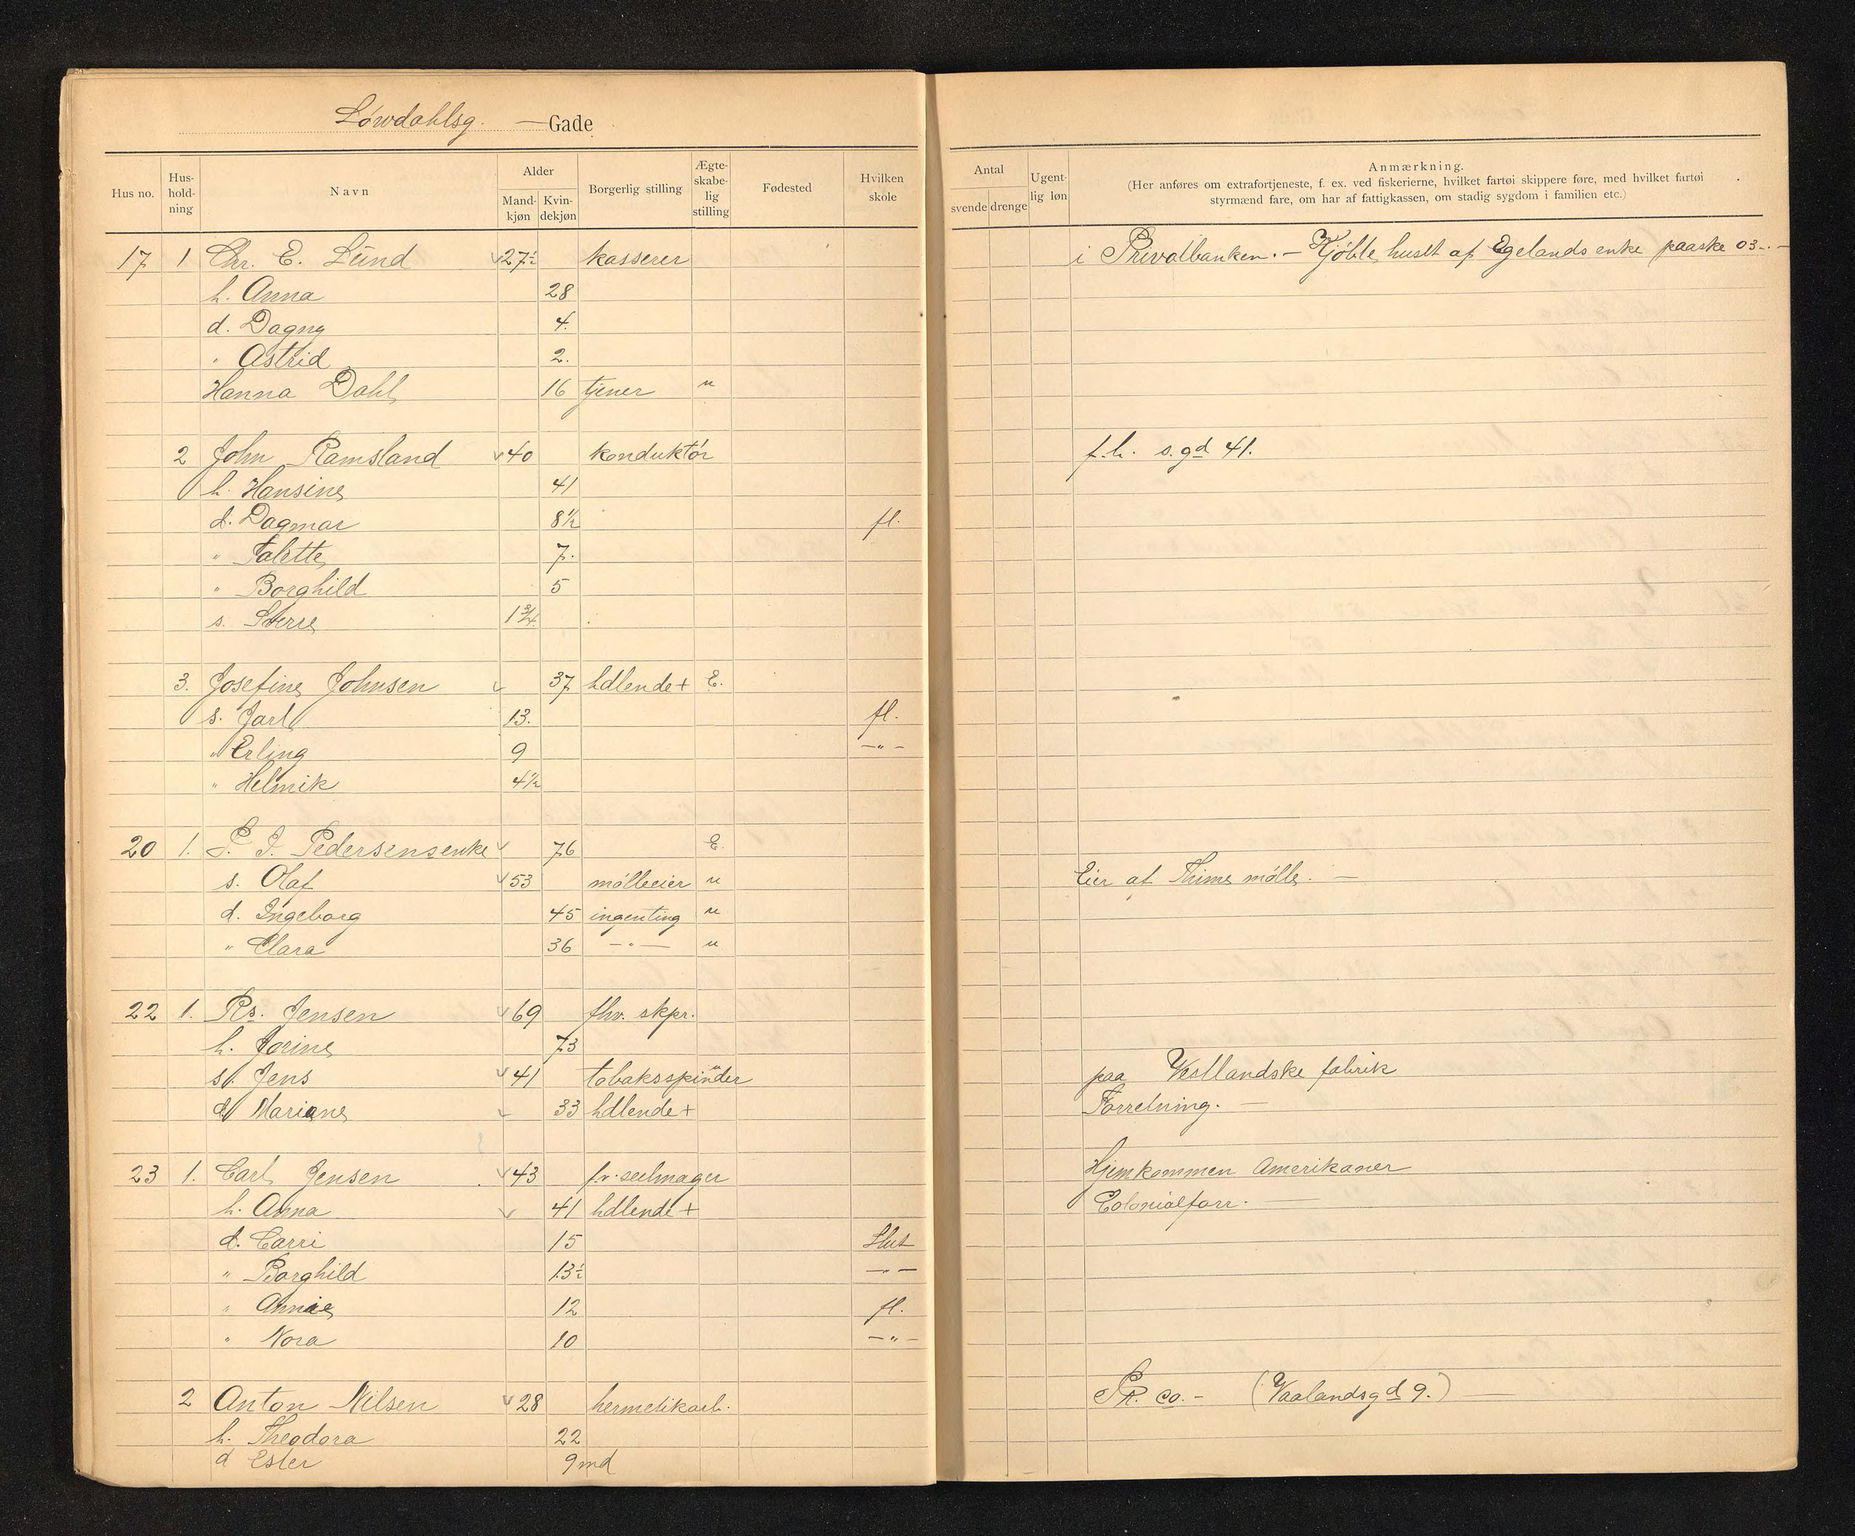 Løwdahlsg. — Gade
Hus no. Hus-hold-ning Navn Alder Mand-kjøn Kvin-dekjøn Borgerlig stilling Ægte-skabe-lig stilling Fødested Hvilken skole
Antal svende drenge Ugent-lig løn Anmærkning.
(Her anføres om extrafortjeneste, f. ex. ved fiskerierne, hvilket fartøi skippere føre, med hvilket fartøi
styrmænd fare, om har af fattigkassen, om stadig sygdom i familien etc.)
17 1 Chr. E. Lund 27½ kasserer i Privatbanken. — Kjøbte huset af Egelands enke paaske 03. —
h. Anna 28
d. Dagny 4.
" Astrid 2.
Hanna Dahl 16 tjener u
2 John Ramsland 40 konduktør f.h. s.gd 41.
h. Hansine 41
d. Dagmar 8½ fl.
" Talette 7.
" Borghild 5
s. Sverre 1¾
3. Josefine Johnsen 37 hdlende + E.
s. Jarl 13. fl.
" Erling 9 — " —
" Helmik 4½
20 1. P. J. Pedersens enke 76 E.
s. Olaf 53 mølleeier u Eier af Thime mølle. —
d. Ingeborg 45 ingenting u
" Clara 36 — " — u
22 1. Rs. Jensen 69 fhv. skpr.
h. Jorine 73
s. Jens 41 tobaksspinder paa Vestlandske fabrik
d. Mariane 33 hdlende + Forretning. —
23 1. Carl Jensen 43 fv. seilmager Hjemkommen Amerikaner
h. Anna 41 hdlende + Colonialforr. —
d. Carri 15 Slut
" Borghild 13½ — " —
" Annie 12 fl.
" Nora 10 — " —
2 Anton Nilsen 28 hermetikarb. Pr. co. — (Vaalandsgd 9.) —
h. Theodora 22
d Ester 9 md